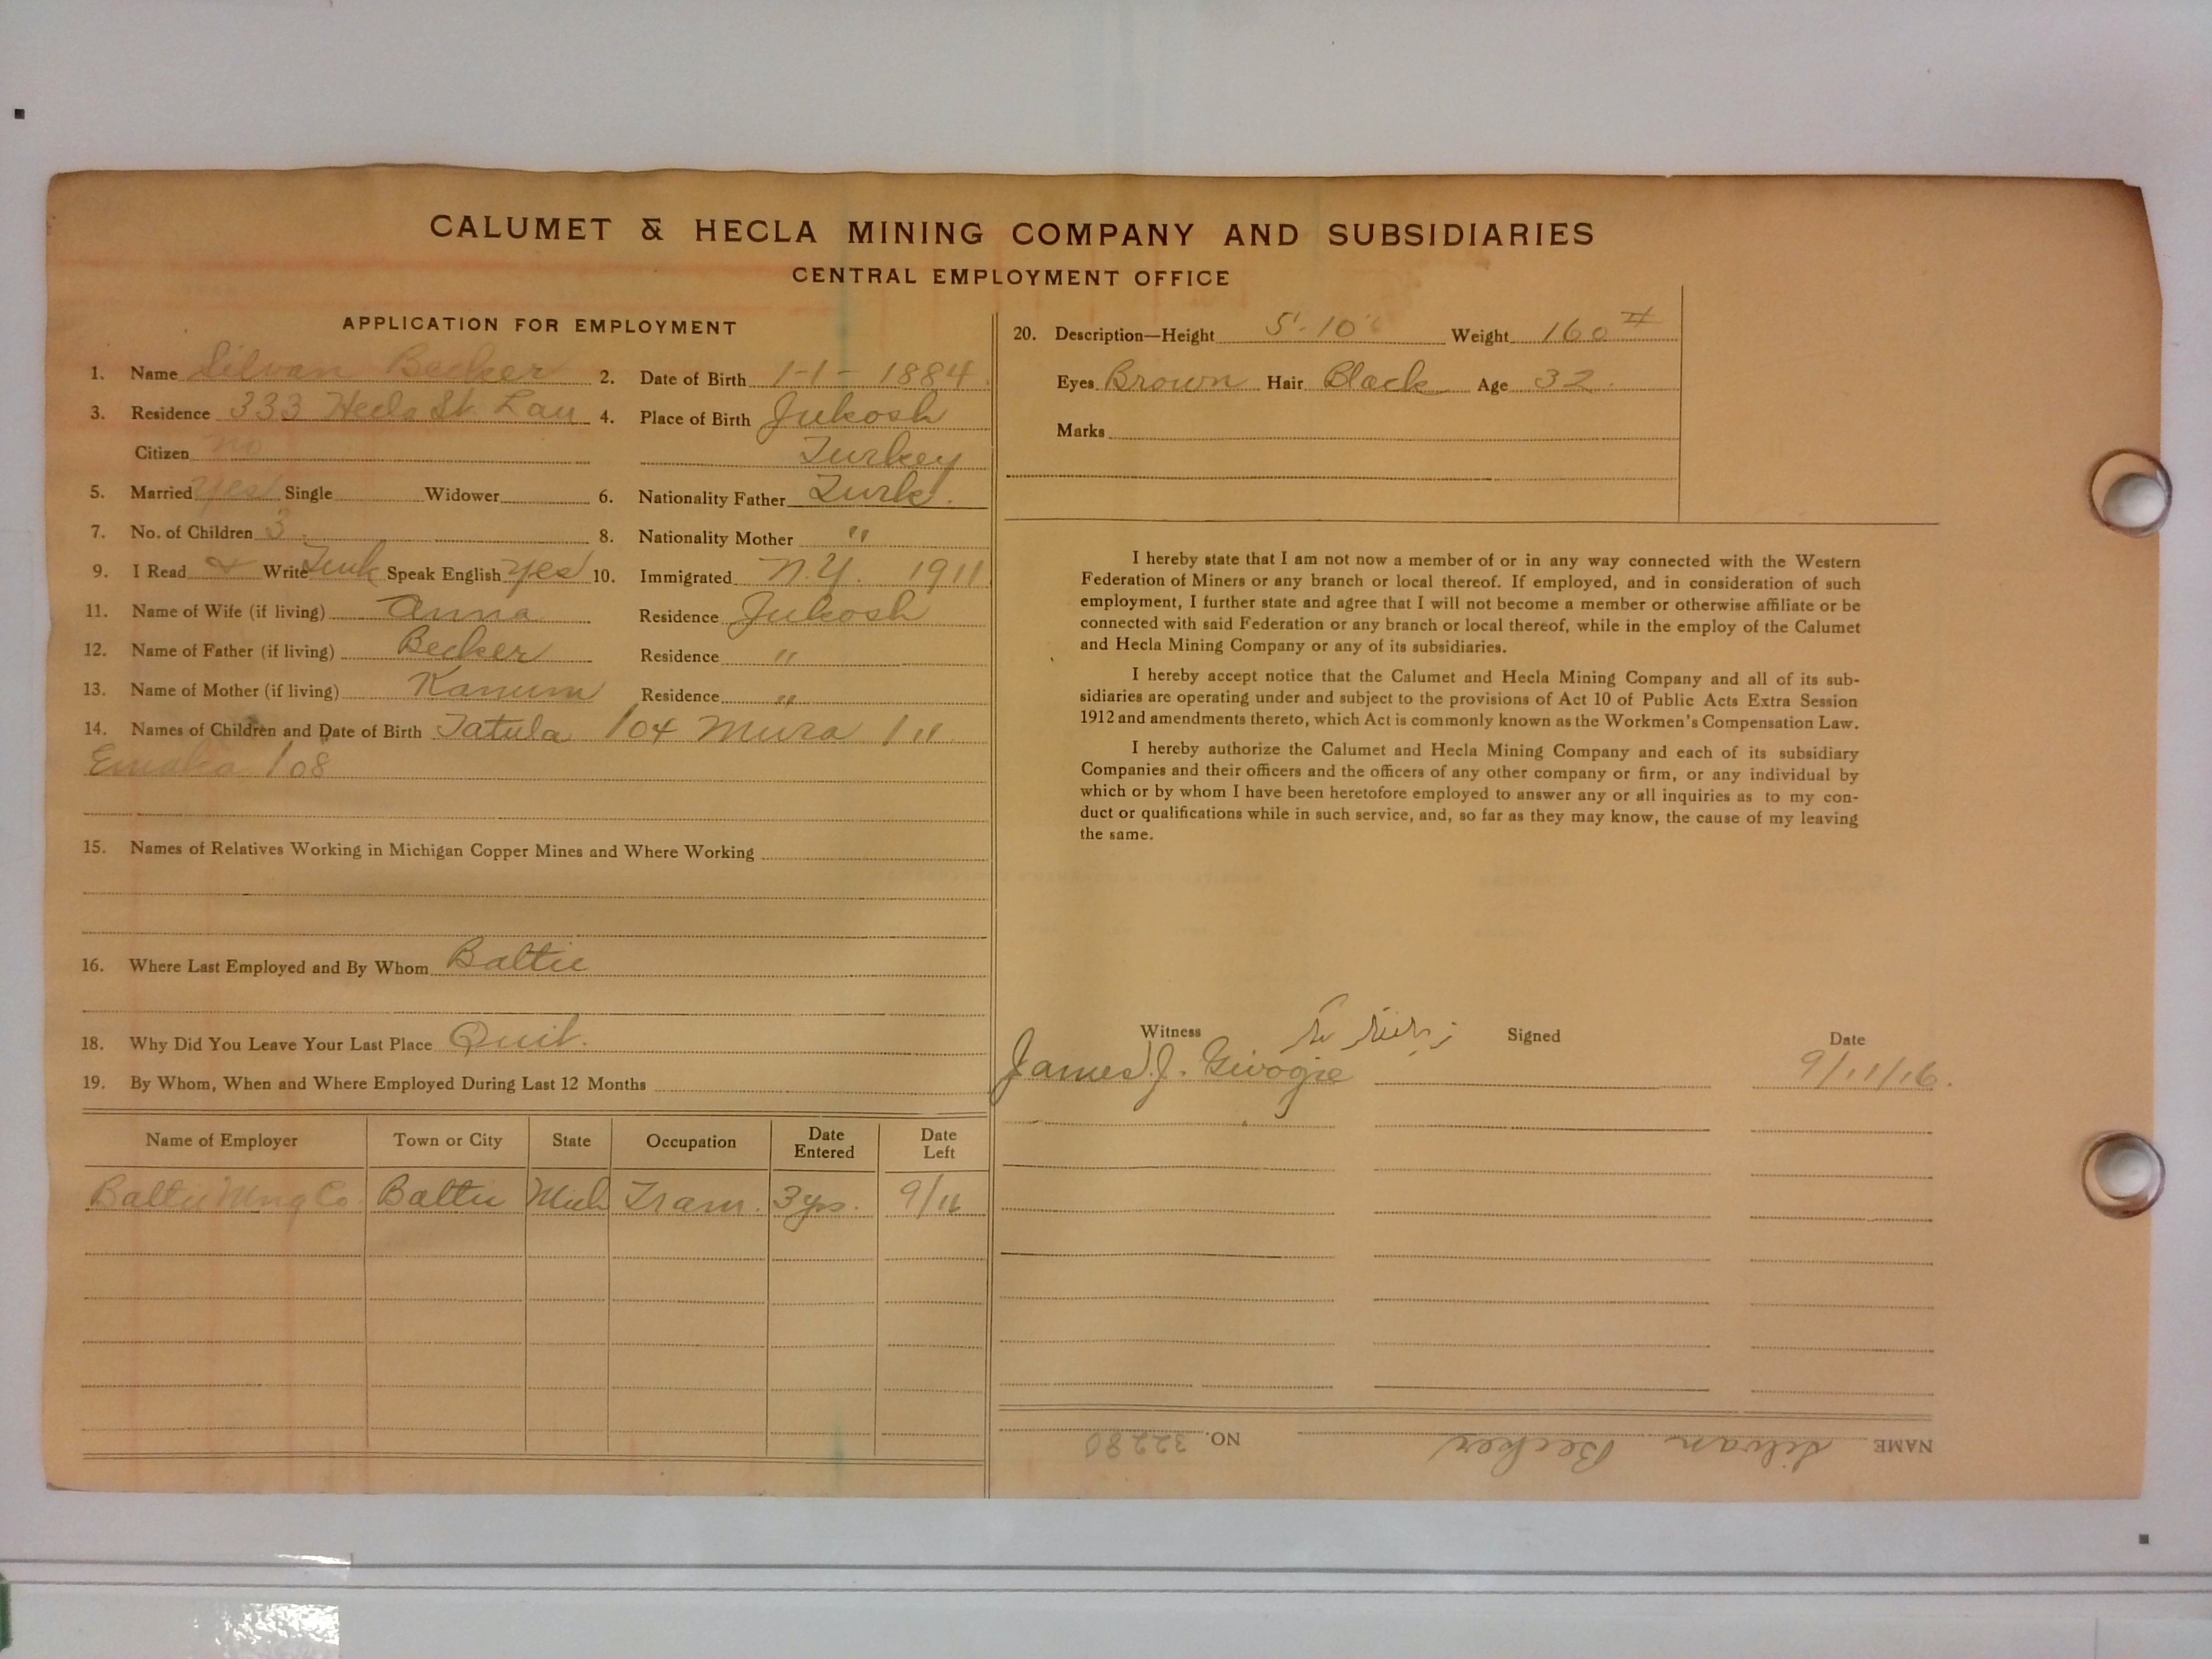 CALUMET & HECLA MINING COMPANY AND SUBSIDIARIES
CENTRAL EMPLOYMENT OFFICE
APPLICATION FOR EMPLOYMENT
1. Name Silvan Becker 2. Date of Birth 1-1-1884
3. Residence 333 Hecla St. Lau 4. Place of Birth Jukosh
Citizen no Turkey
5. Married yes Single Widower 6. Nationality Father Turk.
7. No. of Children 3 8. Nationality Mother "
9. I Read & Write Turk Speak English yes 10. Immigrated N.Y. 1911
11. Name of Wife (if living) Anna Residence Jukosh
12. Name of Father (if living) Becker Residence "
13. Name of Mother (if living) Kanum Residence "
14. Names of Children and Date of Birth Tatula /04 Mura /11
/08
15. Names of Relatives Working in Michigan Copper Mines and Where Working
16. Where Last Employed and By Whom Baltic
18. Why Did You Leave Your Last Place Quit.
19. By Whom, When and Where Employed During Last 12 Months
Name of Employer Town or City State Occupation Date Entered Date Left
Baltic Mng Co. Baltic Mich Tram. 3 yrs. 9/16
20. Description—Height 5'-10" Weight 160#
Eyes Brown Hair Black Age 32
Marks
I hereby state that I am not now a member of or in any way connected with the Western
Federation of Miners or any branch or local thereof. If employed, and in consideration of such
employment, I further state and agree that I will not become a member or otherwise affiliate or be
connected with said Federation or any branch or local thereof, while in the employ of the Calumet
and Hecla Mining Company or any of its subsidiaries.
I hereby accept notice that the Calumet and Hecla Mining Company and all of its sub-
sidiaries are operating under and subject to the provisions of Act 10 of Public Acts Extra Session
1912 and amendments thereto, which Act is commonly known as the Workmen's Compensation Law.
I hereby authorize the Calumet and Hecla Mining Company and each of its subsidiary
Companies and their officers and the officers of any other company or firm, or any individual by
which or by whom I have been heretofore employed to answer any or all inquiries as to my con-
duct or qualifications while in such service, and, so far as they may know, the cause of my leaving
the same.
Witness Signed Date
James J. 9/11/16.
NAME Silvan Becker NO. 32280